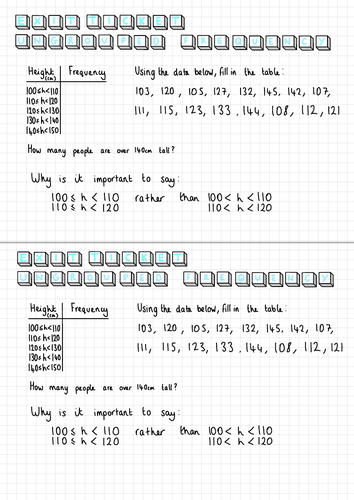 EXIT TICKET
UNGROUPED FREQUENCY
Height (cm) Frequency
100≤h<110
110≤h<120
120≤h<130
130≤h<140
140≤h<150
Using the data below, fill in the table:
103, 120, 105, 127, 132, 145, 142, 107,
111, 115, 123, 133. 144, 108, 112, 121
How many people are over 140cm tall?
Why is it important to say:
100 ≤ h < 110 rather than 100 < h < 110
110 ≤ h < 120 110 < h < 120
EXIT TICKET
UNGROUPED FREQUENCY
Height (cm) Frequency
100≤h<110
110≤h<120
120≤h<130
130≤h<140
140≤h<150
Using the data below, fill in the table:
103, 120, 105, 127, 132, 145, 142, 107,
111, 115, 123, 133. 144, 108, 112, 121
How many people are over 140cm tall?
Why is it important to say:
100 ≤ h < 110 rather than 100 < h < 110
110 ≤ h < 120 110 < h < 120